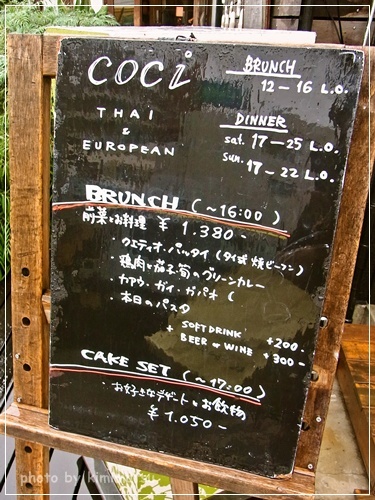 coci
THAI
&
EUROPEAN
BRUNCH
12-16 L.O.
DINNER
sat. 17-25 L.O.
sun. 17-22 L.O.
BRUNCH (~16:00)
前菜とお料理 ¥1.380-
・クエティオ・パッタイ (タイ式焼ビーフン)
・鶏肉と茄子、旬のグリーンカレー
・カァウ・ガイ・ガパオ (
・本日のパスタ
+ SOFT DRINK +200.
BEER or WINE +300-
CAKE SET (~17:00)
・お好きなデザートとお飲物
¥1.050-
photo by